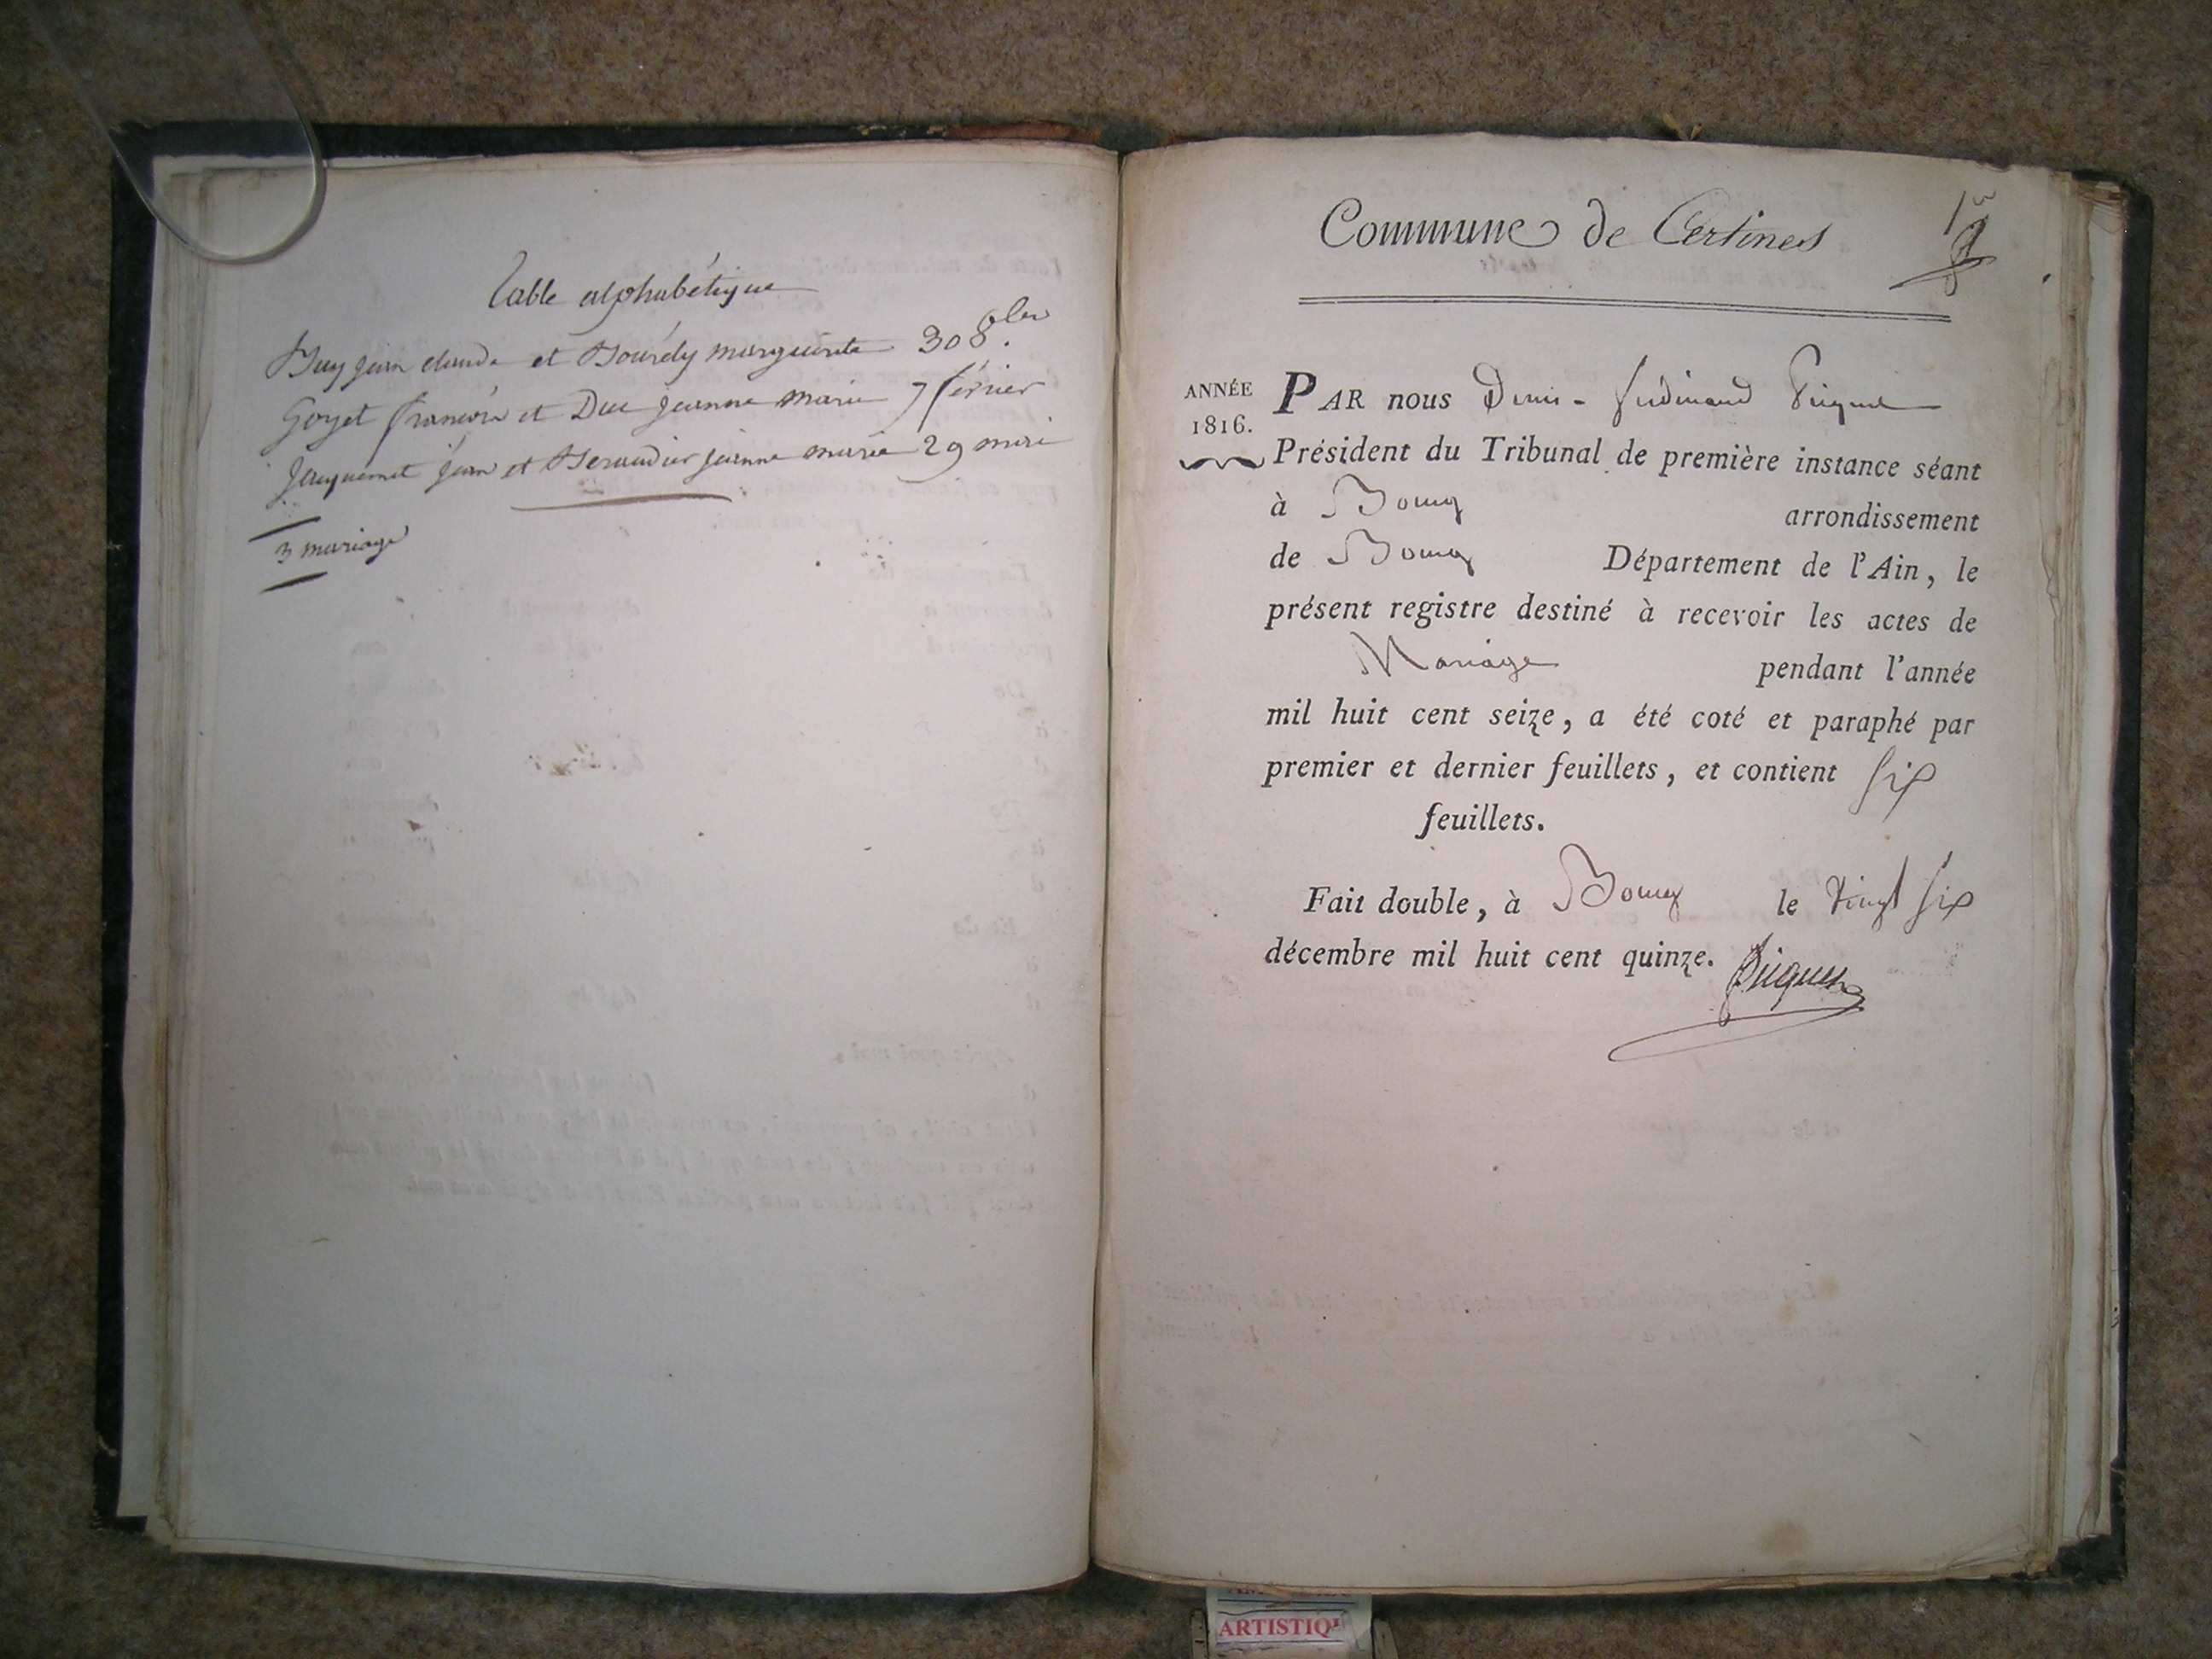 Table alphabétique
Buy jean claude et Bourdy marguerite 30 8bre.
Goyet françois et Duc jeanne marie 7 février
Jacquemet jean et Beraudier jeanne marie 29 mai
3 mariage
Commune de Certines
ANNÉE
1816.
PAR nous Denis - ferdinand
Président du Tribunal de première instance séant
à Bourg arrondissement
de Bourg Département de l'Ain, le
présent registre destiné à recevoir les actes de
Mariage pendant l'année
mil huit cent seize, a été coté et paraphé par
premier et dernier feuillets, et contient six
feuillets.
Fait double, à Bourg le vingt six
décembre mil huit cent quinze.
ARTISTIQ